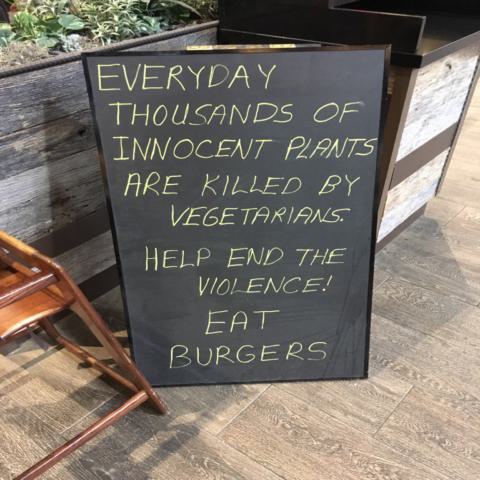 EVERYDAY
THOUSANDS OF
INNOCENT PLANTS
ARE KILLED BY
VEGETARIANS.
HELP END THE
VIOLENCE!
EAT
BURGERS